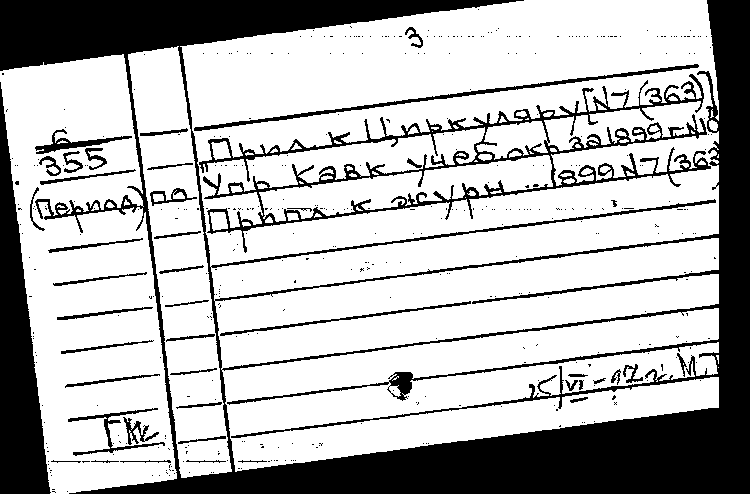 3
Прил. к Циркуляру [N7 (363)]
6
355 "Упр. Кавк. учеб. окр. за 1899 г. N10"
(Период) по Прил. к журн. ... 1899 N7 (363
VI - 97 г. М.